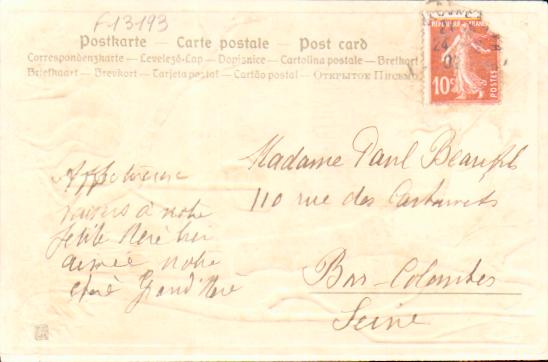 F-13193
Postkarte – Carte postale – Post card
Correspondenzkarte – Levelező-Lap – Dopisnice – Cartolina postale – Brefkort
Briefkaart – Brevkort – Tarjeta postal – Cartão postal – ОТКРЫТОЕ ПИСЬМО
RÉPUBLIQUE FRANÇAISE
24
10c
POSTES
Madame Paul
110 rue des
Bas-Colombes
Seine
à notre
petite Mère
aimée notre
chère Grand'Mère